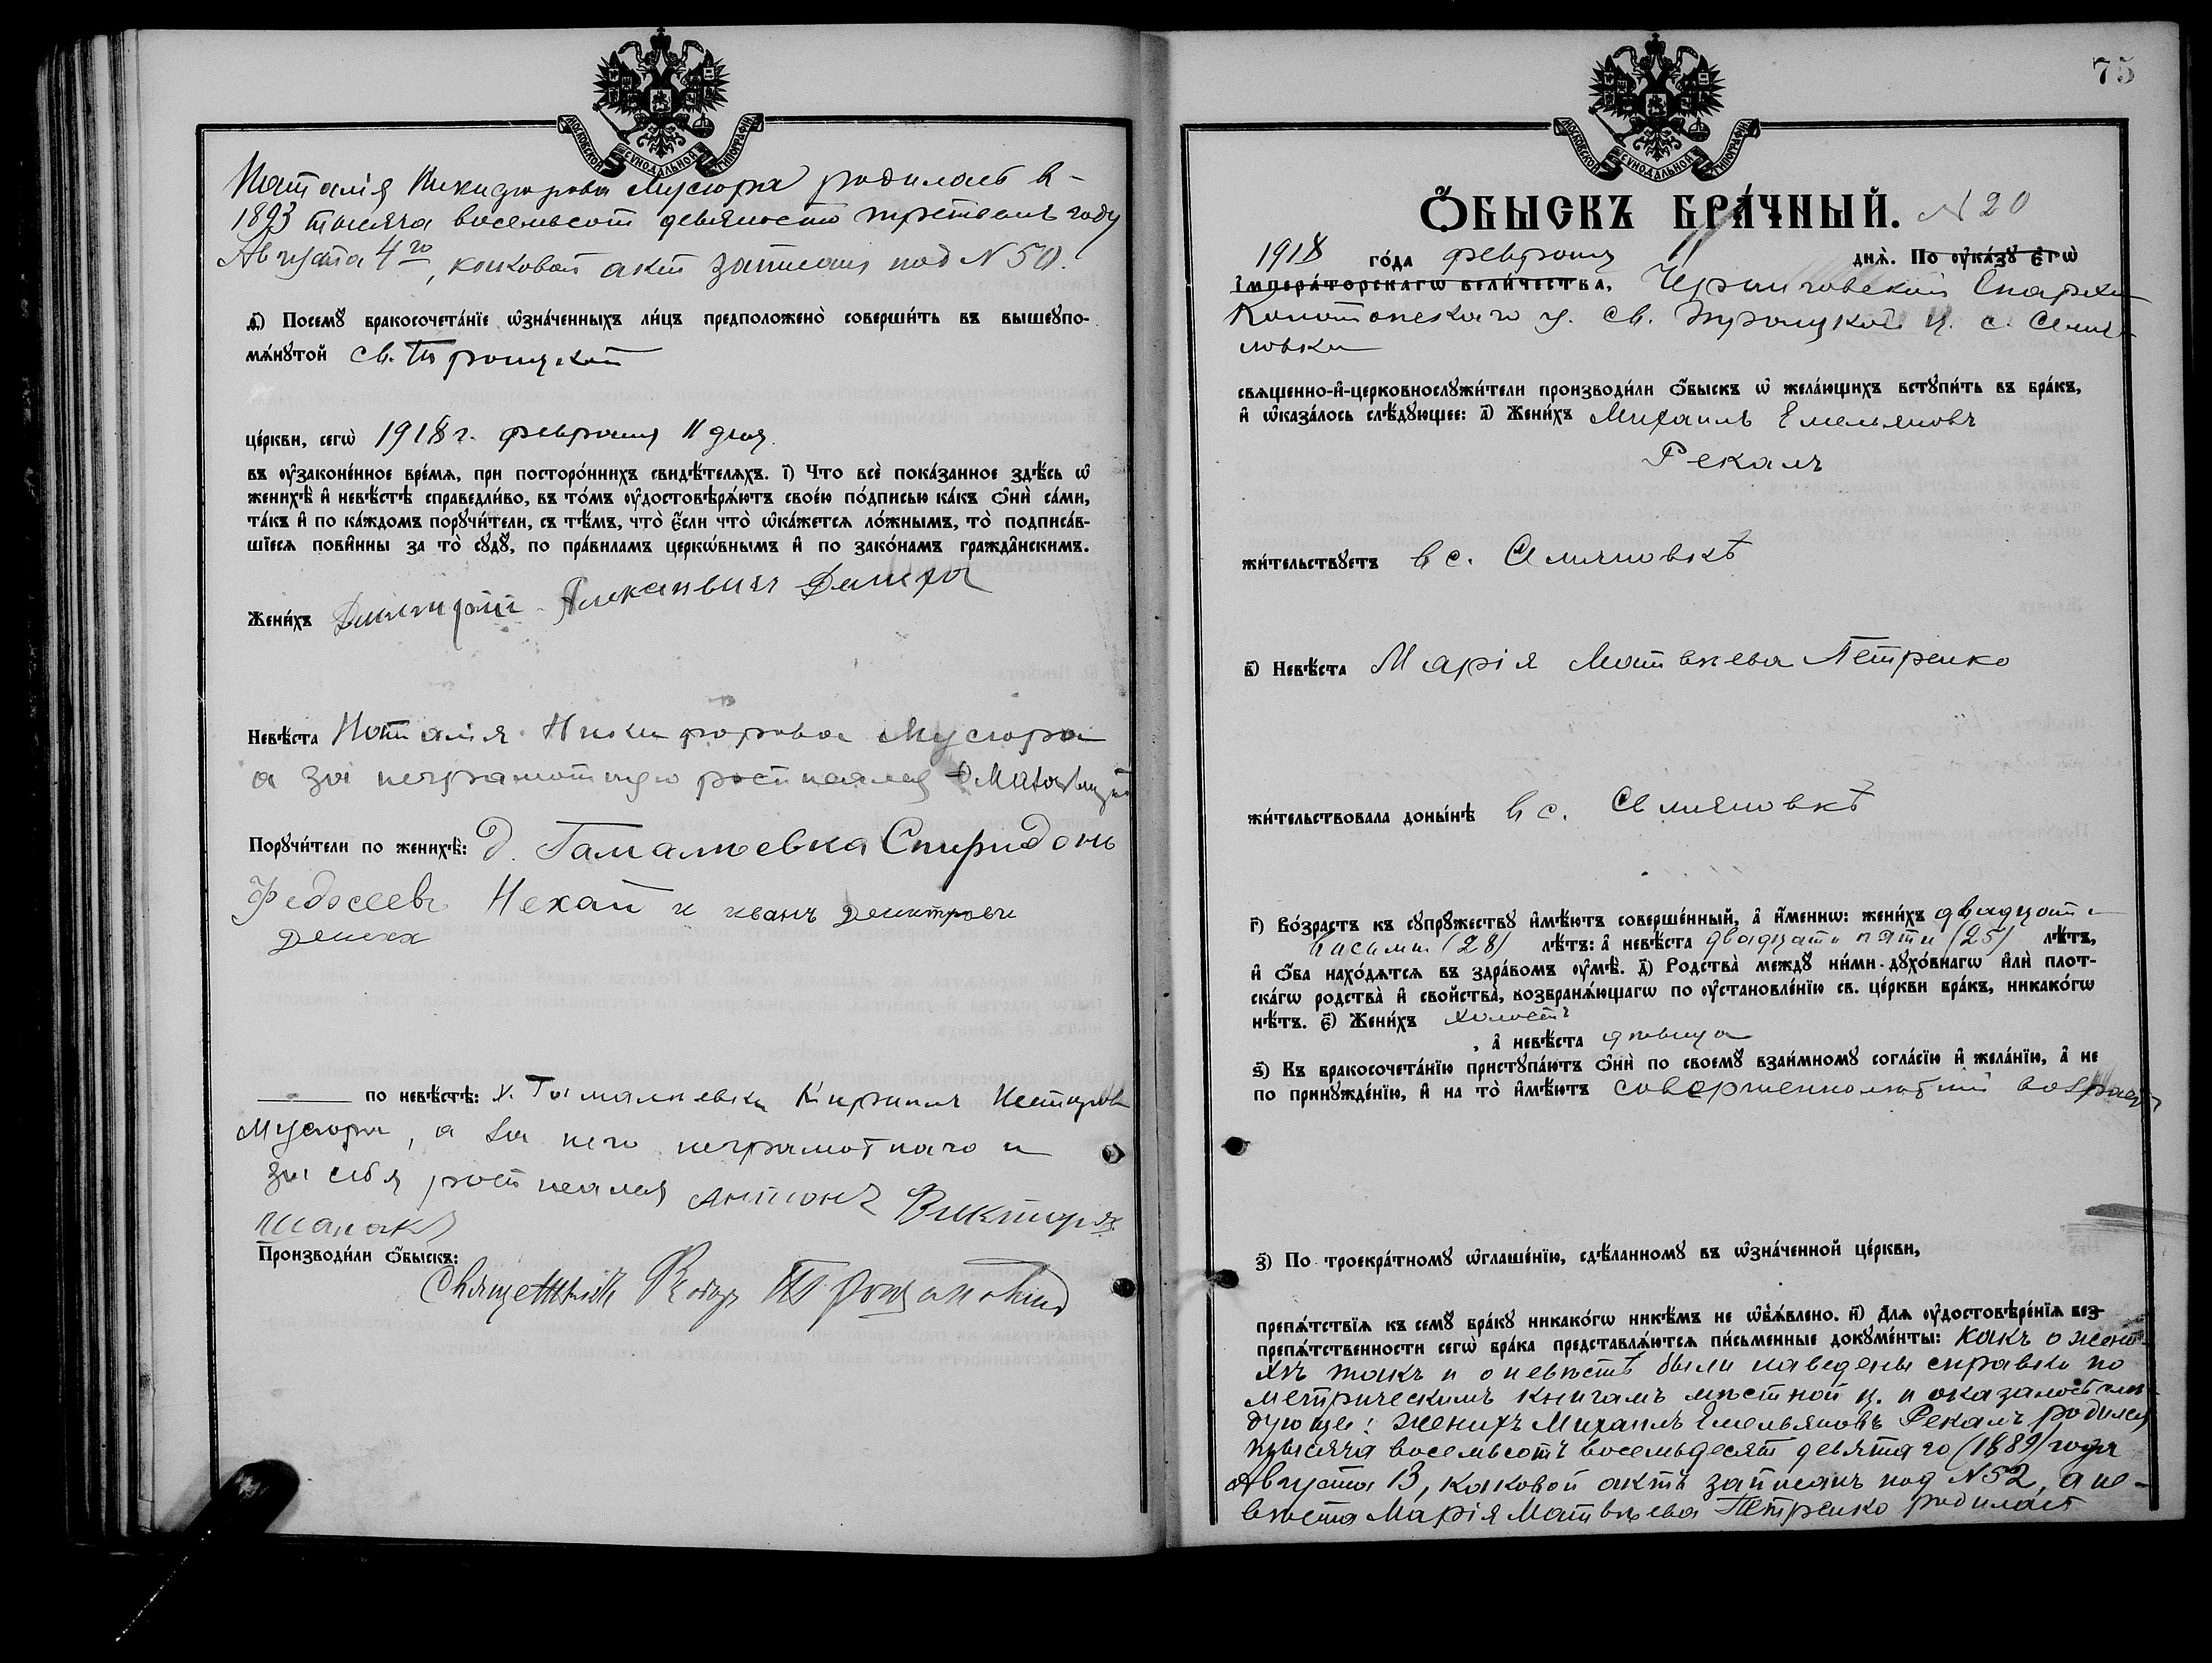 МОСКОВСКОЙ СѴНОДАЛЬНОЙ ТИПОГРАФІИ
Наталія Никифорова Мусюра родилась в-
1893 тысяча восемьсот девяносто третьемъ году
Августа 4го, каковой акт записанъ под N 50.
д҃) Посемꙋ бракосочета́нїе ѡ҆зна́ченныхъ ли́цъ предположено̀ соверши́ть въ вышеꙋпо-
мѧ́нꙋтой св. Троицкой
це́ркви, сегѡ̀ 1918 г. февраля 11 дня.
въ ᲂу҆законе́нное вре́мѧ, при посторо́ннихъ свидѣ́телѧхъ. і҃) Что всѐ пока́занное здѣ́сь ѡ҆
женихѣ̀ и҆ невѣ́стѣ справедли́во, въ то́мъ ᲂу҆достовѣрѧ́ютъ свое́ю по́дписью ка́къ ѻ҆нѝ са́ми,
та́къ и҆ по ка́ждомъ порꙋчи́тели, съ тѣ́мъ, что̀ є҆́сли что̀ ѡ҆ка́жетсѧ ло́жнымъ, то̀ подписа́в-
шїесѧ пови́нны за то̀ сꙋдꙋ̀, по пра́виламъ церко́внымъ и҆ по зако́намъ гражда́нскимъ.
Жени́хъ Дмитрій
Невѣ́ста Наталія Никифорова Мусюра
а за неграмотную росписался
Порꙋчи́тели по женихѣ̀: д. Гамалѣевка Спиридонъ
Федосеевъ Нехай и иванъ Дмитровъ
по невѣ́стѣ: х. Гамалѣевки Кирилъ
Мусюра, а за него неграмотнаго и
за себя росписался Антонъ
Производи́ли ѻ҆́быскъ:
Священникъ
75
МОСКОВСКОЙ СѴНОДАЛЬНОЙ ТИПОГРАФІИ
Ѻ҆́БЫСКЪ БРА́ЧНЫЙ. N 20
1918 го́да февраля 11 днѧ̀. По ᲂу҆ка́зꙋ є҆гѡ̀
і҆мпера́торскагѡ вели́чества, Черниговской Епархіи
Конотопскаго у. св. Троицкой ц. с. Семя-
новки
свѧщенно-и҆-церковнослꙋжи́тели производи́ли ѻ҆́быскъ ѡ҆ жела́ющихъ встꙋпи́ть въ бра́къ,
и҆ ѡ҆каза́лось слѣ́дꙋющее: а҃) Жени́хъ Михаилъ Емельяновъ
Рекалъ
жи́тельствꙋетъ в с. Семяновкѣ
в҃) Невѣ́ста Марія Матвѣева Петренко
жи́тельствовала доны́нѣ в с. Семяновкѣ
г҃) Во́зрастъ къ сꙋпрꙋ́жествꙋ и҆мѣ́ютъ соверше́нный, а҆ и҆́меннѡ: жени́хъ двадцати
восьми (28) лѣ́тъ: а҆ невѣ́ста двадцати пяти (25) лѣ́тъ,
и҆ ѻ҆́ба нахо́дѧтсѧ въ здра́вомъ ᲂу҆мѣ̀. д҃) Родства̀ междꙋ̀ ни́ми дꙋхо́внагѡ и҆лѝ плот-
ска́гѡ родства̀ и҆ свойства̀, возбранѧ́ющагѡ по ᲂу҆становле́нїю св. це́ркви бра́къ, никако́гѡ
нѣ́тъ. є҃) Жени́хъ холостъ
, а҆ невѣ́ста дѣвица
ѕ҃) Къ бракосочета́нїю пристꙋпа́ютъ ѻ҆нѝ по своемꙋ̀ взаи́мномꙋ согла́сїю и҆ жела́нїю, а҆ не
по принꙋжде́нїю, и҆ на то̀ и҆мѣ́ютъ совершеннолѣтній возраст
з҃) По троекра́тномꙋ ѡ҆глаше́нїю, сдѣ́ланномꙋ въ ѡ҆зна́ченной це́ркви,
препѧ́тствїѧ къ семꙋ̀ бра́кꙋ никако́гѡ никѣ́мъ не ѡ҆б̾ѧ́влено. и҃) Длѧ ᲂу҆достовѣре́нїѧ без-
препѧ́тственности сегѡ̀ бра́ка представлѧ́ютсѧ пи́сьменные докꙋме́нты: какъ о жени-
хѣ такъ и о невѣстѣ были наведены справки по
метрическимъ книгамъ мѣстной ц. и оказалось слѣ-
дующее: женихъ Михаилъ Емельяновъ Рекалъ родился
тысяча восемьсотъ восемьдесят девятаго (1889) года
Августа 13, каковой актъ записанъ под N 52, а не-
вѣста Марія Матвѣева Петренко родилась